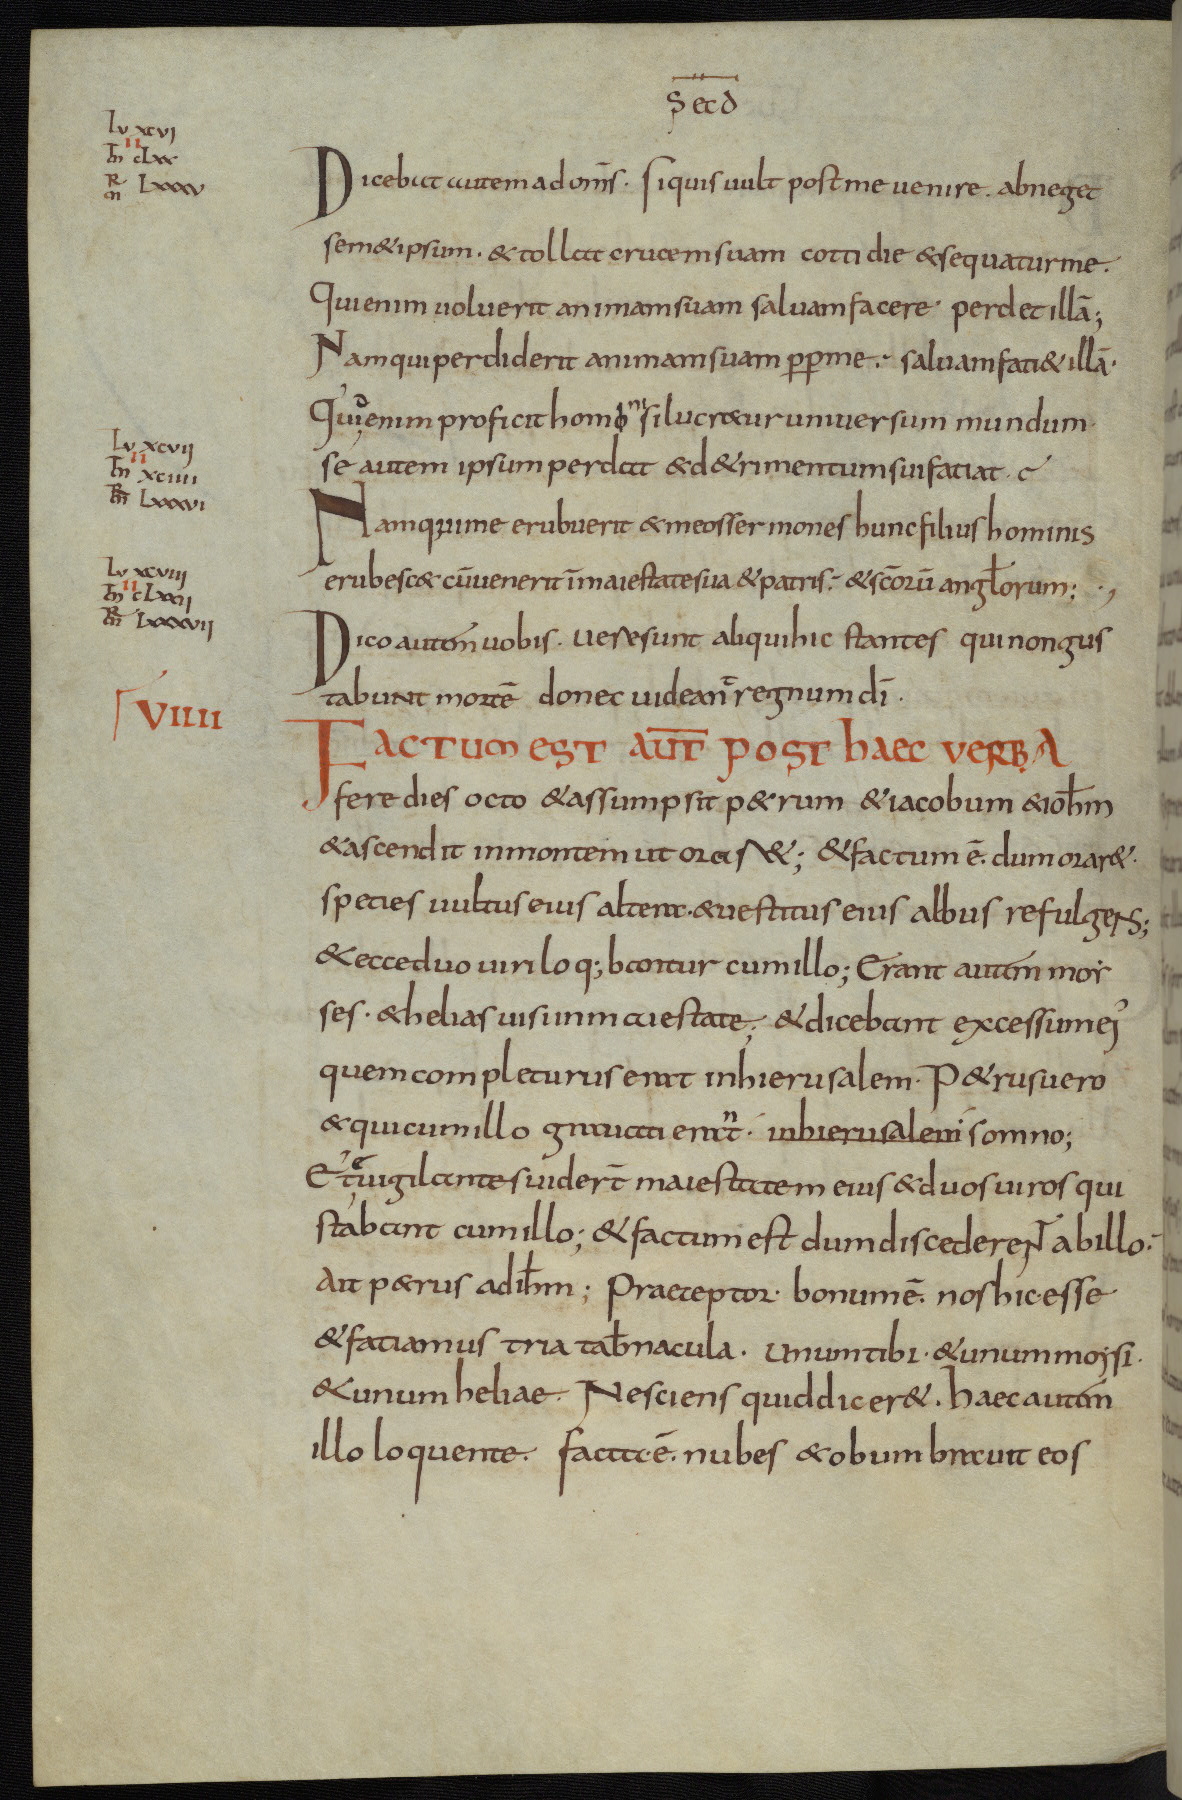 Secd
Lu xcvi
II
m cLxx
R Lxxxv
m
Dicebat autem ad om̄s. Si quis uult post me uenire. abneget
sem&ipsum. & tollat crucem suam cottidie & sequatur me.
Qui enim uoluerit animam suam saluam facere perdet illā;
Nam qui perdiderit animam suam pp me. saluam fati& illā.
Quid enim proficit homo si lucr&ur uniuersum mundum
se autem ipsum perdat & d&rimentum sui fatiat.
Lu xcvii
II
m xciiii
R
m Lxxxvi
Nam qui me erubuerit & meos sermones hunc filius hominis
erubesc& cū uenerit ī maiestate sua & patris. & sc̄orū angl̄orum;
Lu xcviii
II
m cLxxii
R
m Lxxxvii
Dico autem uobis. uere sunt aliqui hic stantes qui non gus
tabunt mortē donec uideant regnum dī.
VIIII
Factum est aut̄ post haec verba
fere dies octo & assumpsit p&rum & iacobum & ioh̄m
& ascendit in montem ut orar&; & factum ē. dum orar&.
species uultus eius altera. & uestitus eius albus refulgens;
& ecce duo uiri loq;bantur cum illo; Erant autem moy
ses. & helias uisi in maiestate; & dicebant excessum ei'
quem completurus erat in hierusalem. P&rus uero
& qui cum illo grauati erant. in hierusalem somno;
Et euigilantes uider̄t maiestatem eius & duos uiros qui
stabant cum illo; & factum est dum discederent ab illo.
Ait p&rus ad ih̄m; Praeceptor. bonum ē. nos hic esse
& fatiamus tria tab̄nacula. unum tibi. & unum moysi.
& unum heliae. Nesciens quid dicer&. haec autem
illo loquente. facta ē. nubes & obumbrauit eos